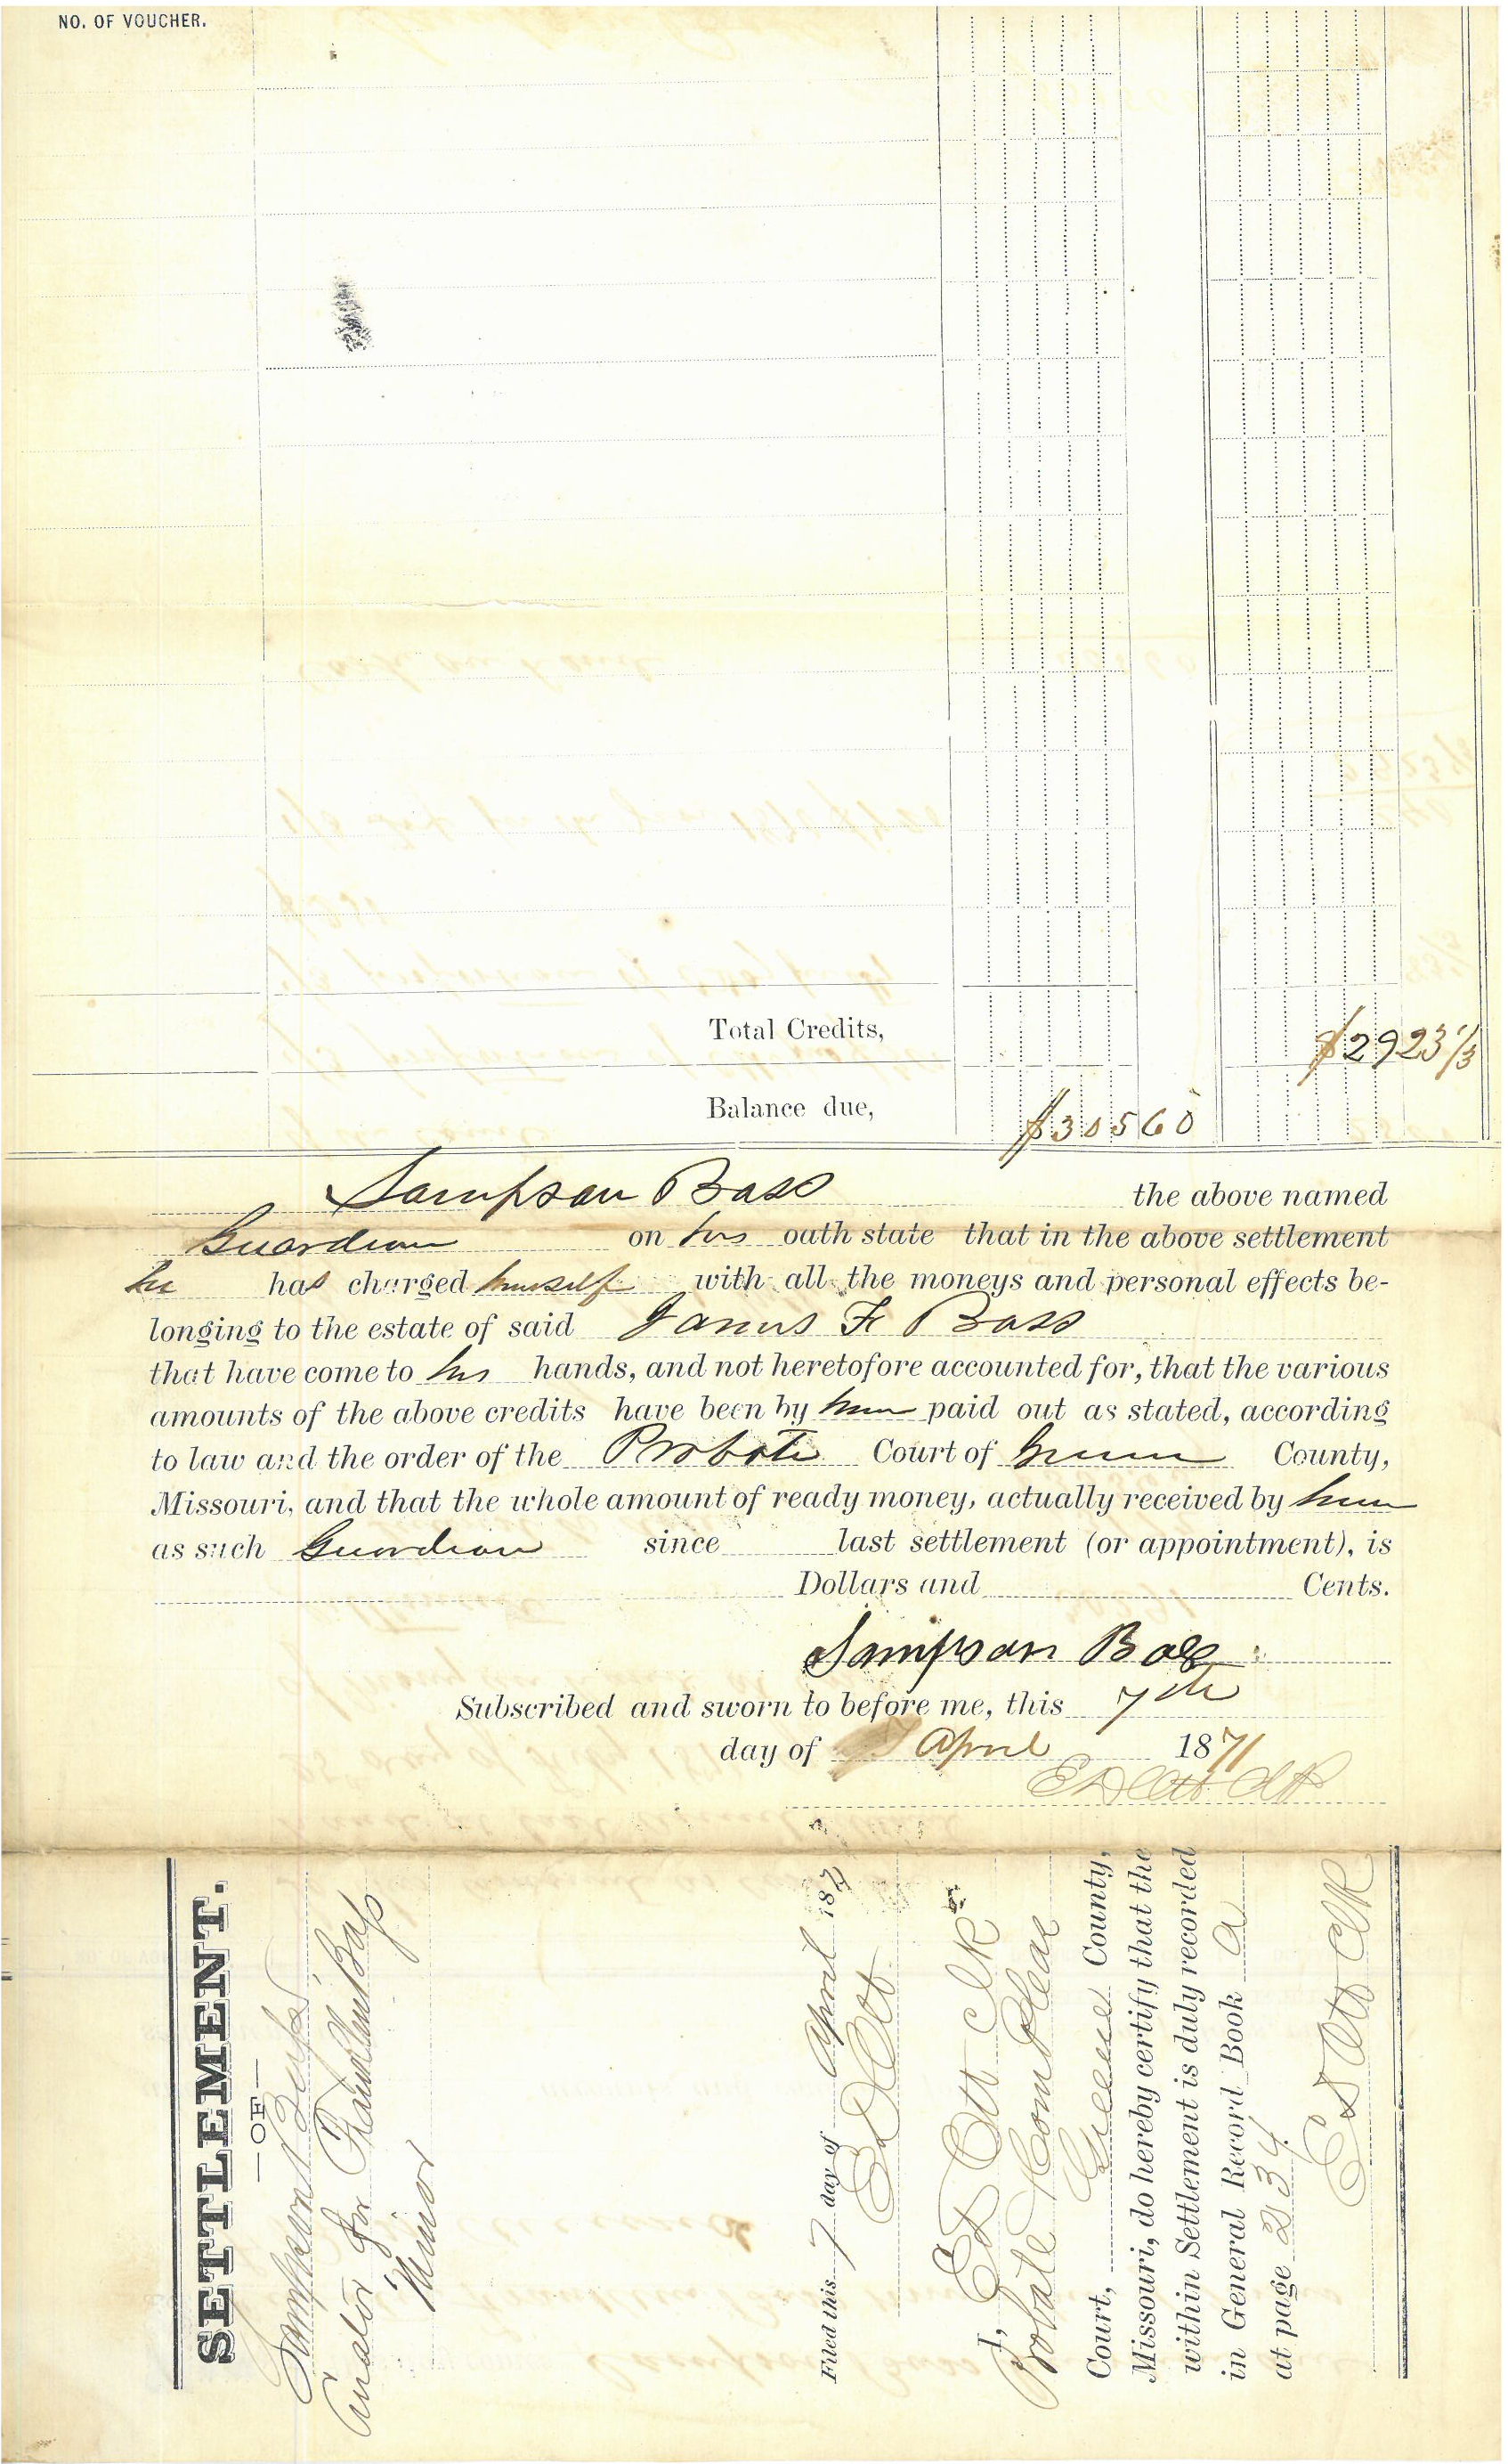 NO. OF VOUCHER.
Total Credits, $2923 1/3
Balance due, $30560
Sampson Bass the above named
Guardian on his oath state that in the above settlement
he has charged himself with all the moneys and personal effects be-
longing to the estate of said James F Bass
that have come to his hands, and not heretofore accounted for, that the various
amounts of the above credits have been by him paid out as stated, according
to law and the order of the Probate Court of Greene County,
Missouri, and that the whole amount of ready money, actually received by him
as such Guardian since last settlement (or appointment), is
Dollars and Cents.
Sampson Bass
Subscribed and sworn to before me, this 7th
day of April 1871
E D Ott Clk
SETTLEMENT.
— OF —
Sampson Bass
Curator for Bass
Minor
Filed this 7 day of April 1871
E D Ott
I, E D Ott Clk
Probate & Com Pleas
Court, Greene County,
Missouri, do hereby certify that the
within Settlement is duly recorded
in General Record Book A
at page 234
E D Ott Clk